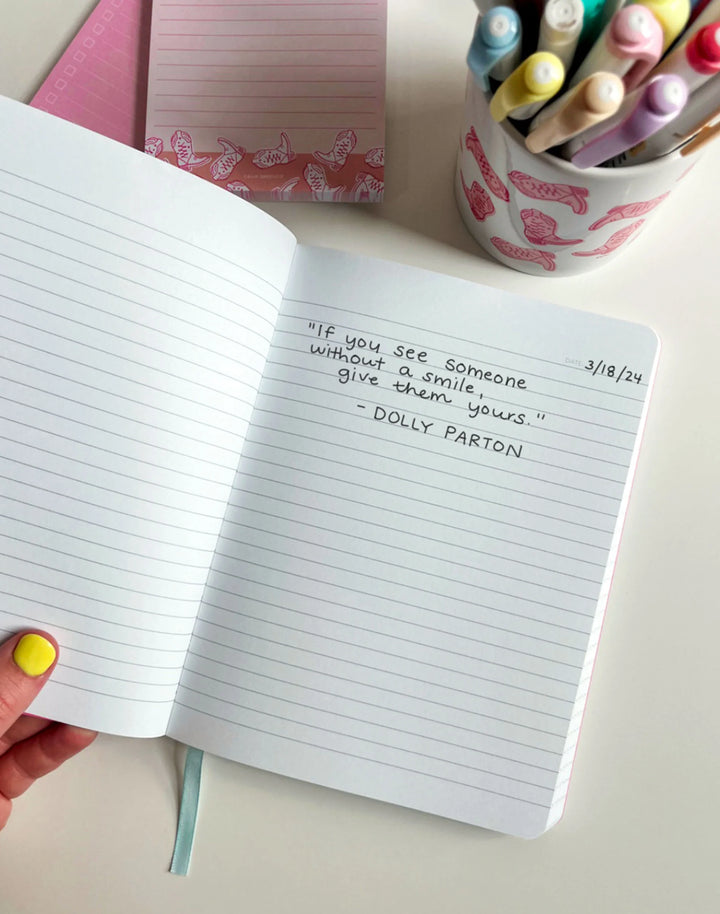 DATE: 3/18/24
"If you see someone
without a smile,
give them yours."
- DOLLY PARTON